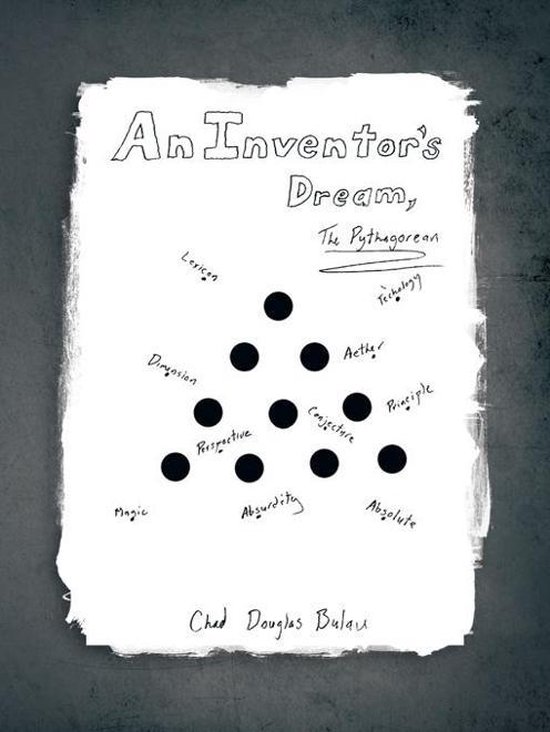 An Inventor's
Dream,
The Pythagorean
Lexicon
Techology
Aether
Dimension
Principle
Conjecture
Perspective
Magic
Absurdity
Absolute
Chad Douglas Bulau